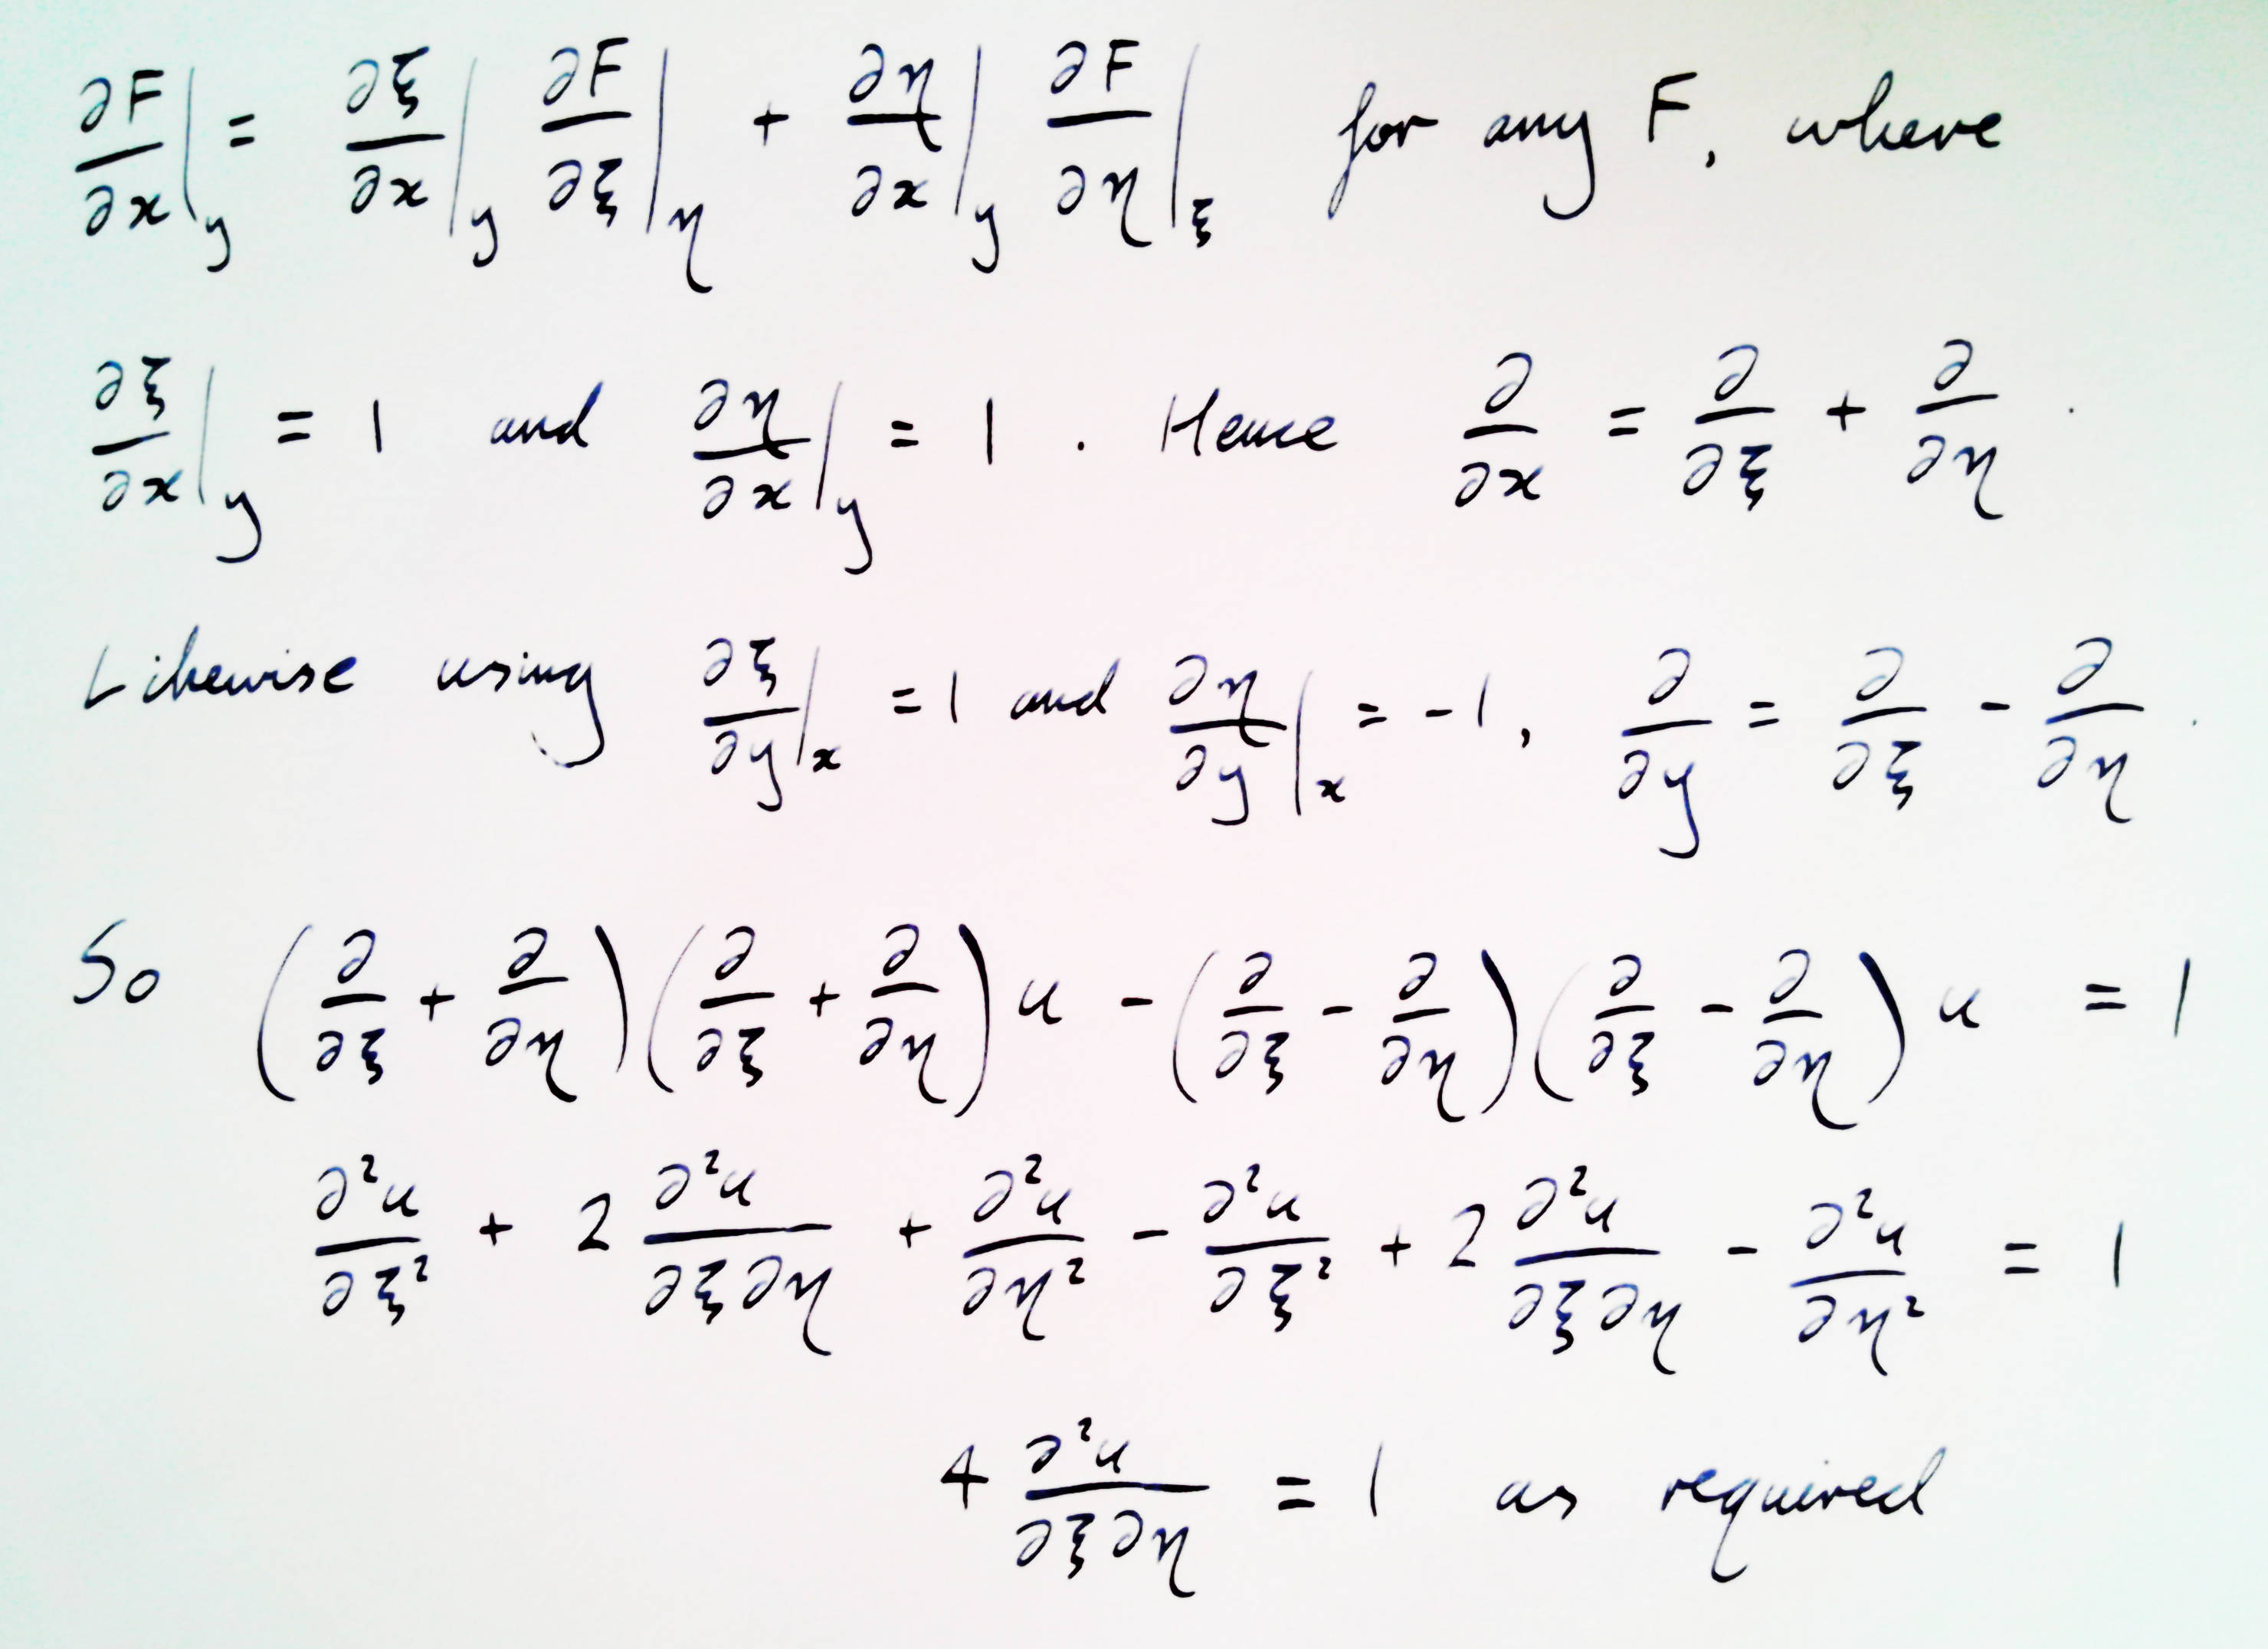 ∂F/∂x|_y = ∂ξ/∂x|_y ∂F/∂ξ|_η + ∂η/∂x|_y ∂F/∂η|_ξ for any F, where
∂ξ/∂x|_y = 1 and ∂η/∂x|_y = 1 . Hence ∂/∂x = ∂/∂ξ + ∂/∂η .
Likewise using ∂ξ/∂y|_x = 1 and ∂η/∂y|_x = -1, ∂/∂y = ∂/∂ξ - ∂/∂η .
So (∂/∂ξ + ∂/∂η)(∂/∂ξ + ∂/∂η) u - (∂/∂ξ - ∂/∂η)(∂/∂ξ - ∂/∂η) u = 1
∂²u/∂ξ² + 2 ∂²u/∂ξ∂η + ∂²u/∂η² - ∂²u/∂ξ² + 2 ∂²u/∂ξ∂η - ∂²u/∂η² = 1
4 ∂²u/∂ξ∂η = 1 as required